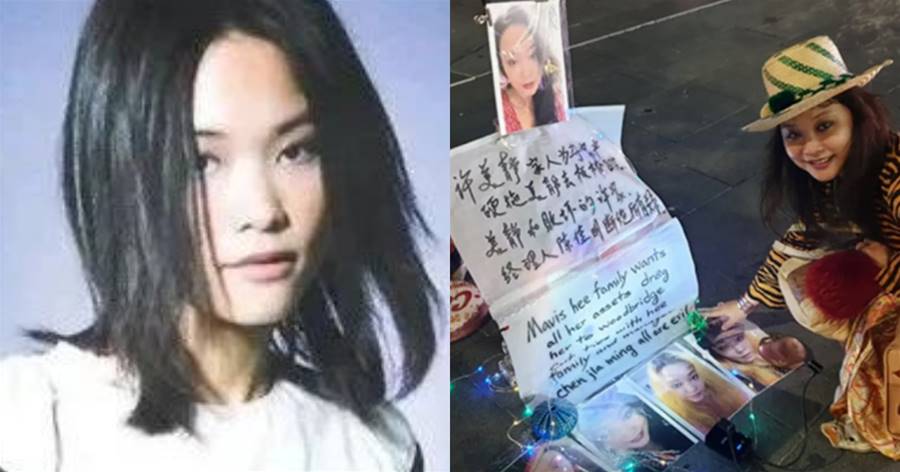 许美静家人为
硬拖美静去板桥
美静和
经理人陈佳明断绝所有
Mavis hee family wants
all her assets drag
her to woodbridge
with hee
family and
chen jia ming all are evil